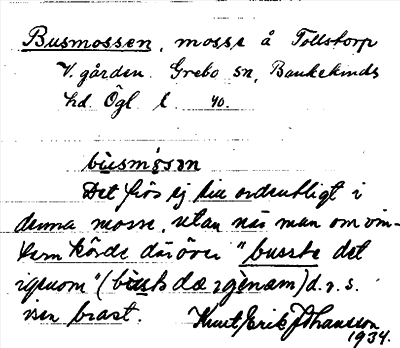 Busmossen, mosse å Tollstorp
V. gården. Grebo sn, Bankekinds
hd. Ögl l. 40.
Det frös ej till ordentligt i
denna mosse, utan när man om vin-
tern körde däröver "busste det
igenom" d.v.s.
isen brast. Knut Erik Johansson
1934.